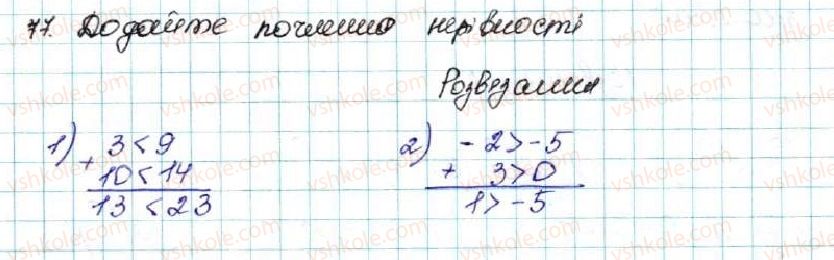 77. Додайте почленно нерівності
Розв'язання
1) 3 < 9
+ 10 < 14
13 < 23
2) - 2 > - 5
+ 3 > 0
1 > - 5
vshkole.com